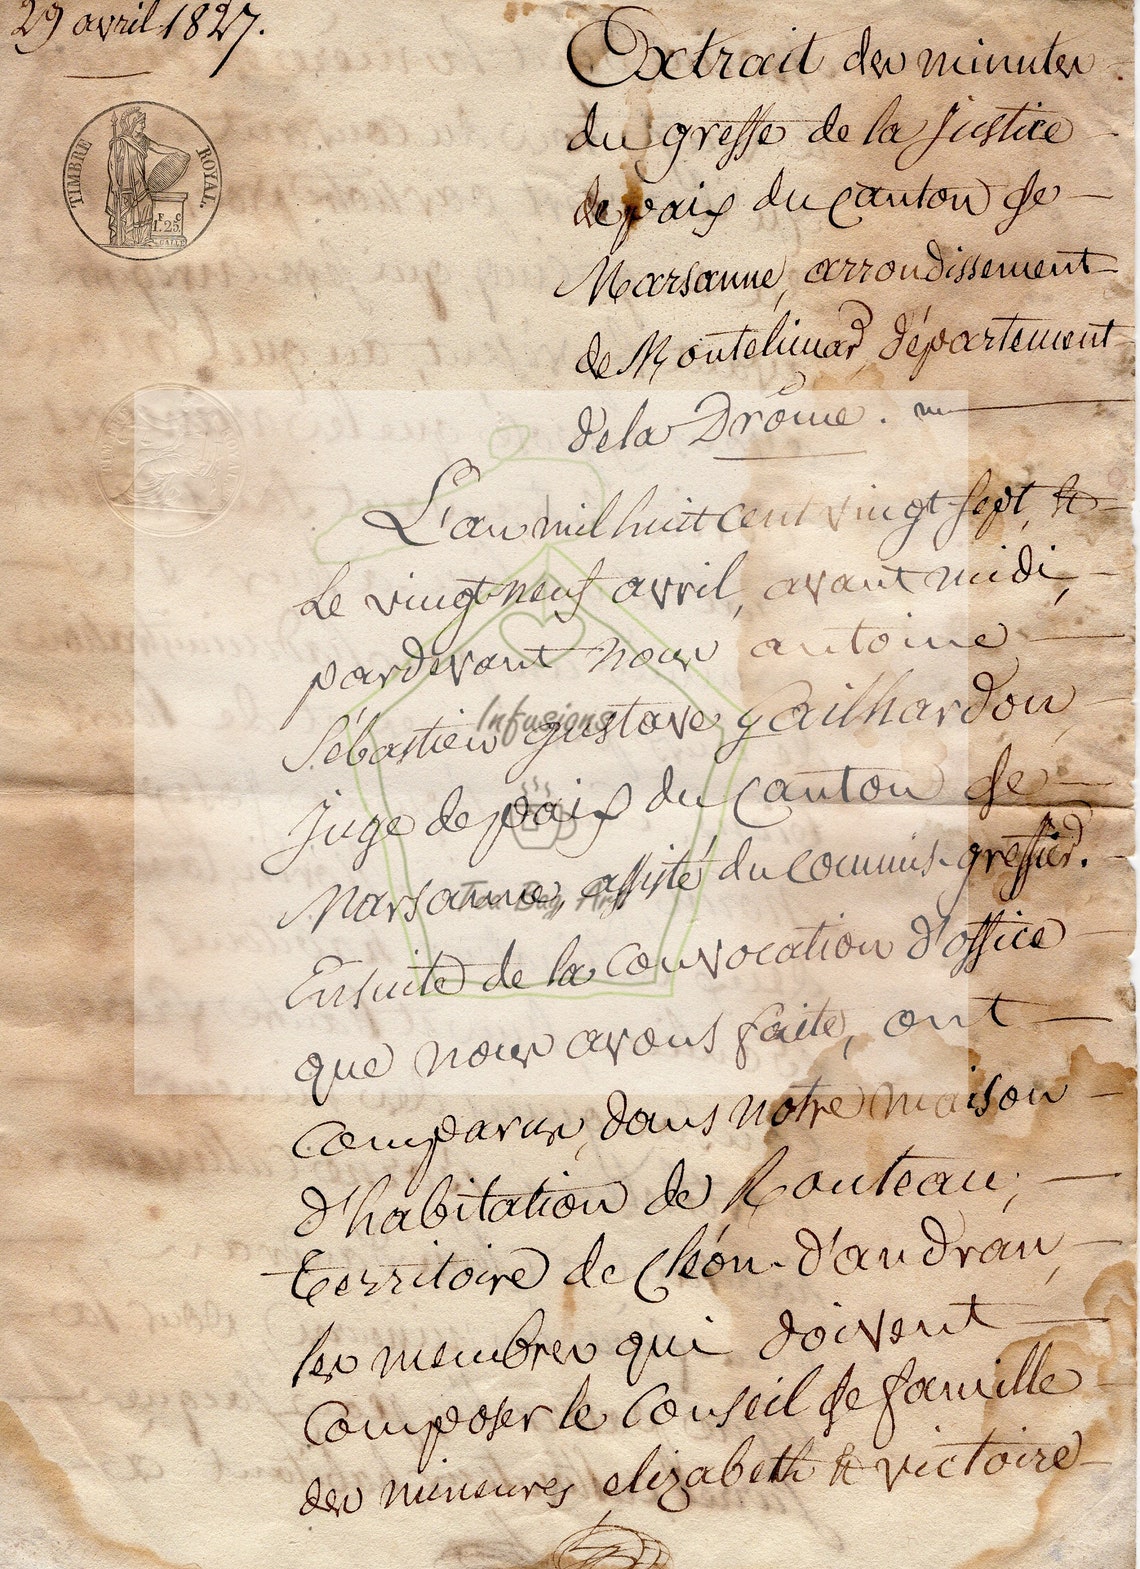 29 avril 1827.
TIMBRE ROYAL.
F. C
1.25
Extrait des minutes
du greffe de la Justice
de paix du Canton de
Marsanne, arrondissement
de Montelimar, département
de la Drôme.
L'an mil huit cent vingt sept, &
Le vingt neuf avril, avant midi,
pardevant nous antoine
Sébastien gustave gailhardon,
Infusions
Juge de paix du Canton de
Marsanne, assisté du Commis-greffier.
Tea Bag Art
Ensuite de la Convocation d'office
que nous avons faite, ont
Comparus, dans notre maison
d'habitation de Routeau,
territoire de Cléon-d'andran,
les membres qui doivent
Composer le Conseil de famille
des mineures elizabeth & victoire